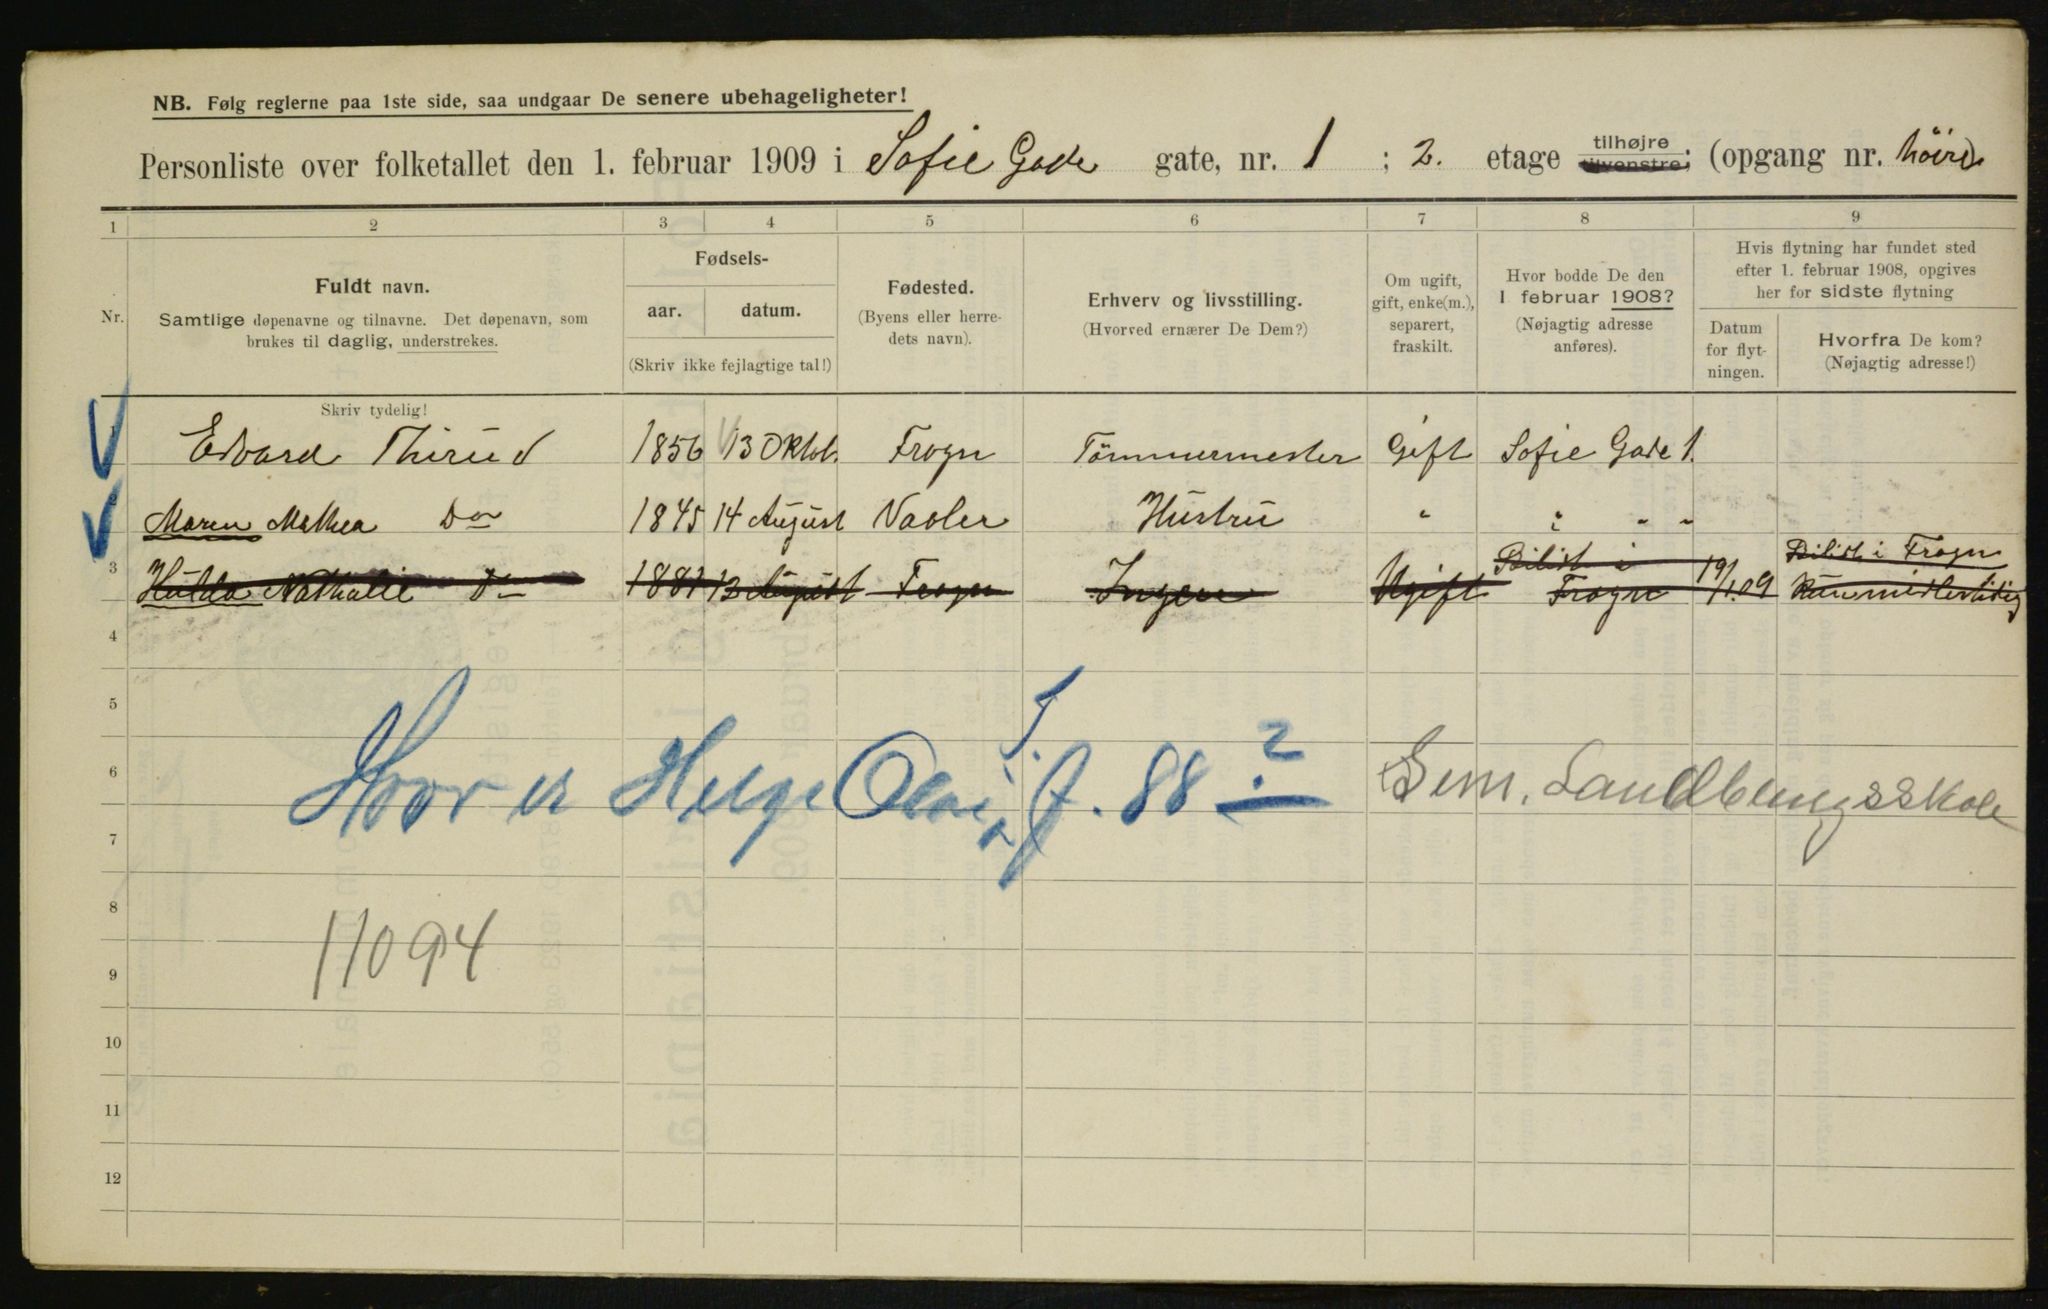 NB. Følg reglerne paa 1ste side, saa undgaar De senere ubehageligheter!
Personliste over folketallet den 1. februar 1909 i Sofie Gade gate, nr. 1 ; 2. etage tilhøjre tilvenstre; (opgang nr. höire)
1 2 3 4 5 6 7 8 9
Nr.
Fuldt navn.
Samtlige døpenavne og tilnavne. Det døpenavn, som
brukes til daglig, understrekes.
Skriv tydelig!
Fødsels-
aar. datum.
(Skriv ikke fejlagtige tal!)
Fødested.
(Byens eller herre-
dets navn).
Erhverv og livsstilling.
(Hvorved ernærer De Dem?)
Om ugift,
gift, enke(m.),
separert,
fraskilt.
Hvor bodde De den
1 februar 1908?
(Nøjagtig adresse
anføres).
Hvis flytning har fundet sted
efter 1. februar 1908, opgives
her for sidste flytning
Datum
for flyt-
ningen.
Hvorfra De kom?
(Nøjagtig adresse!)
1 Edvard Thirud 1856 13 Oktob. Frogn Tömmermester Gift Sofie Gade 1.
2 Maren Mathea Do 1845 14 August Hustru " " " "
3 Hulda Nathalie Do 1881 12 August Frogn Ingen Ugift Bilist i Frogn 19/1.09 Bilist i Frogn
Kun midlertidig
4
5
6 Hvor er Helge f. 88 ?
7
8
11094
9
10
11
12